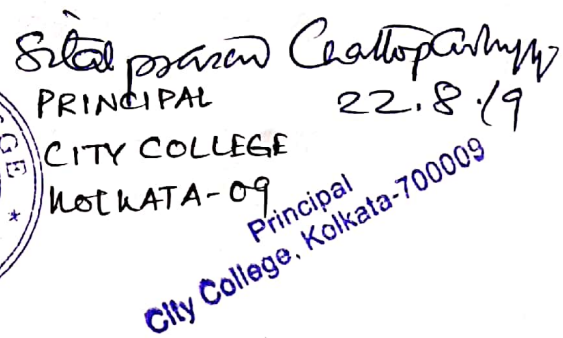 Sital prasad Chattopadhyay
PRINCIPAL 22.8.19
CITY COLLEGE
KOLKATA-09
Principal
City College, Kolkata-700009
GE *